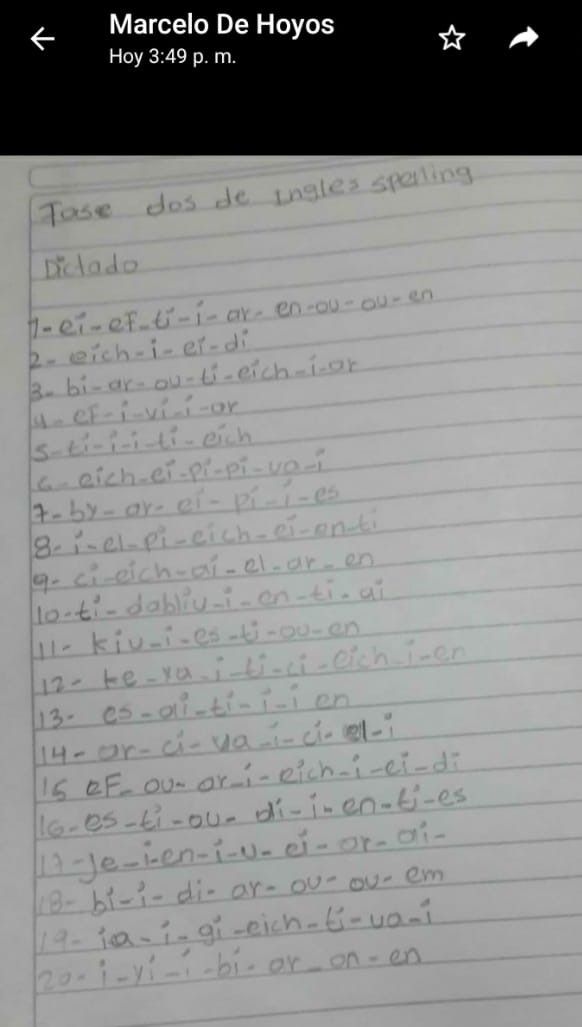 Marcelo De Hoyos
Hoy 3:49 p. m.
Tase dos de ingles spelling
Dictado
1-ei-eF-ti-i-ar-en-ou-ou-en
2-eich-i-ei-di
3-bi-ar-ou-ti-eich-i-ar
4-eF-i-vi-i-ar
5-ti-i-i-ti-eich
6-eich-ei-pi-pi-ua-i
7-by-ar-ei-pi-i-es
8-i-el-pi-eich-ei-en-ti
9-ci-eich-ai-el-ar-en
10-ti-dabliu-i-en-ti-ai
11-kiu-i-es-ti-ou-en
12-ke-ya-i-ti-ci-eich-i-en
13-es-ai-ti-i-i en
14-ar-ci-ua-i-ci-el-i
15 eF-ou-ar-i-eich-i-ei-di
16-es-ti-ou-di-i-en-ti-es
17-je-i-en-i-u-ei-ar-ai-
18-bi-i-di-ar-ou-ou-em
19-ia-i-gi-eich-ti-ua-i
20-i-vi-i-bi-ar-on-en